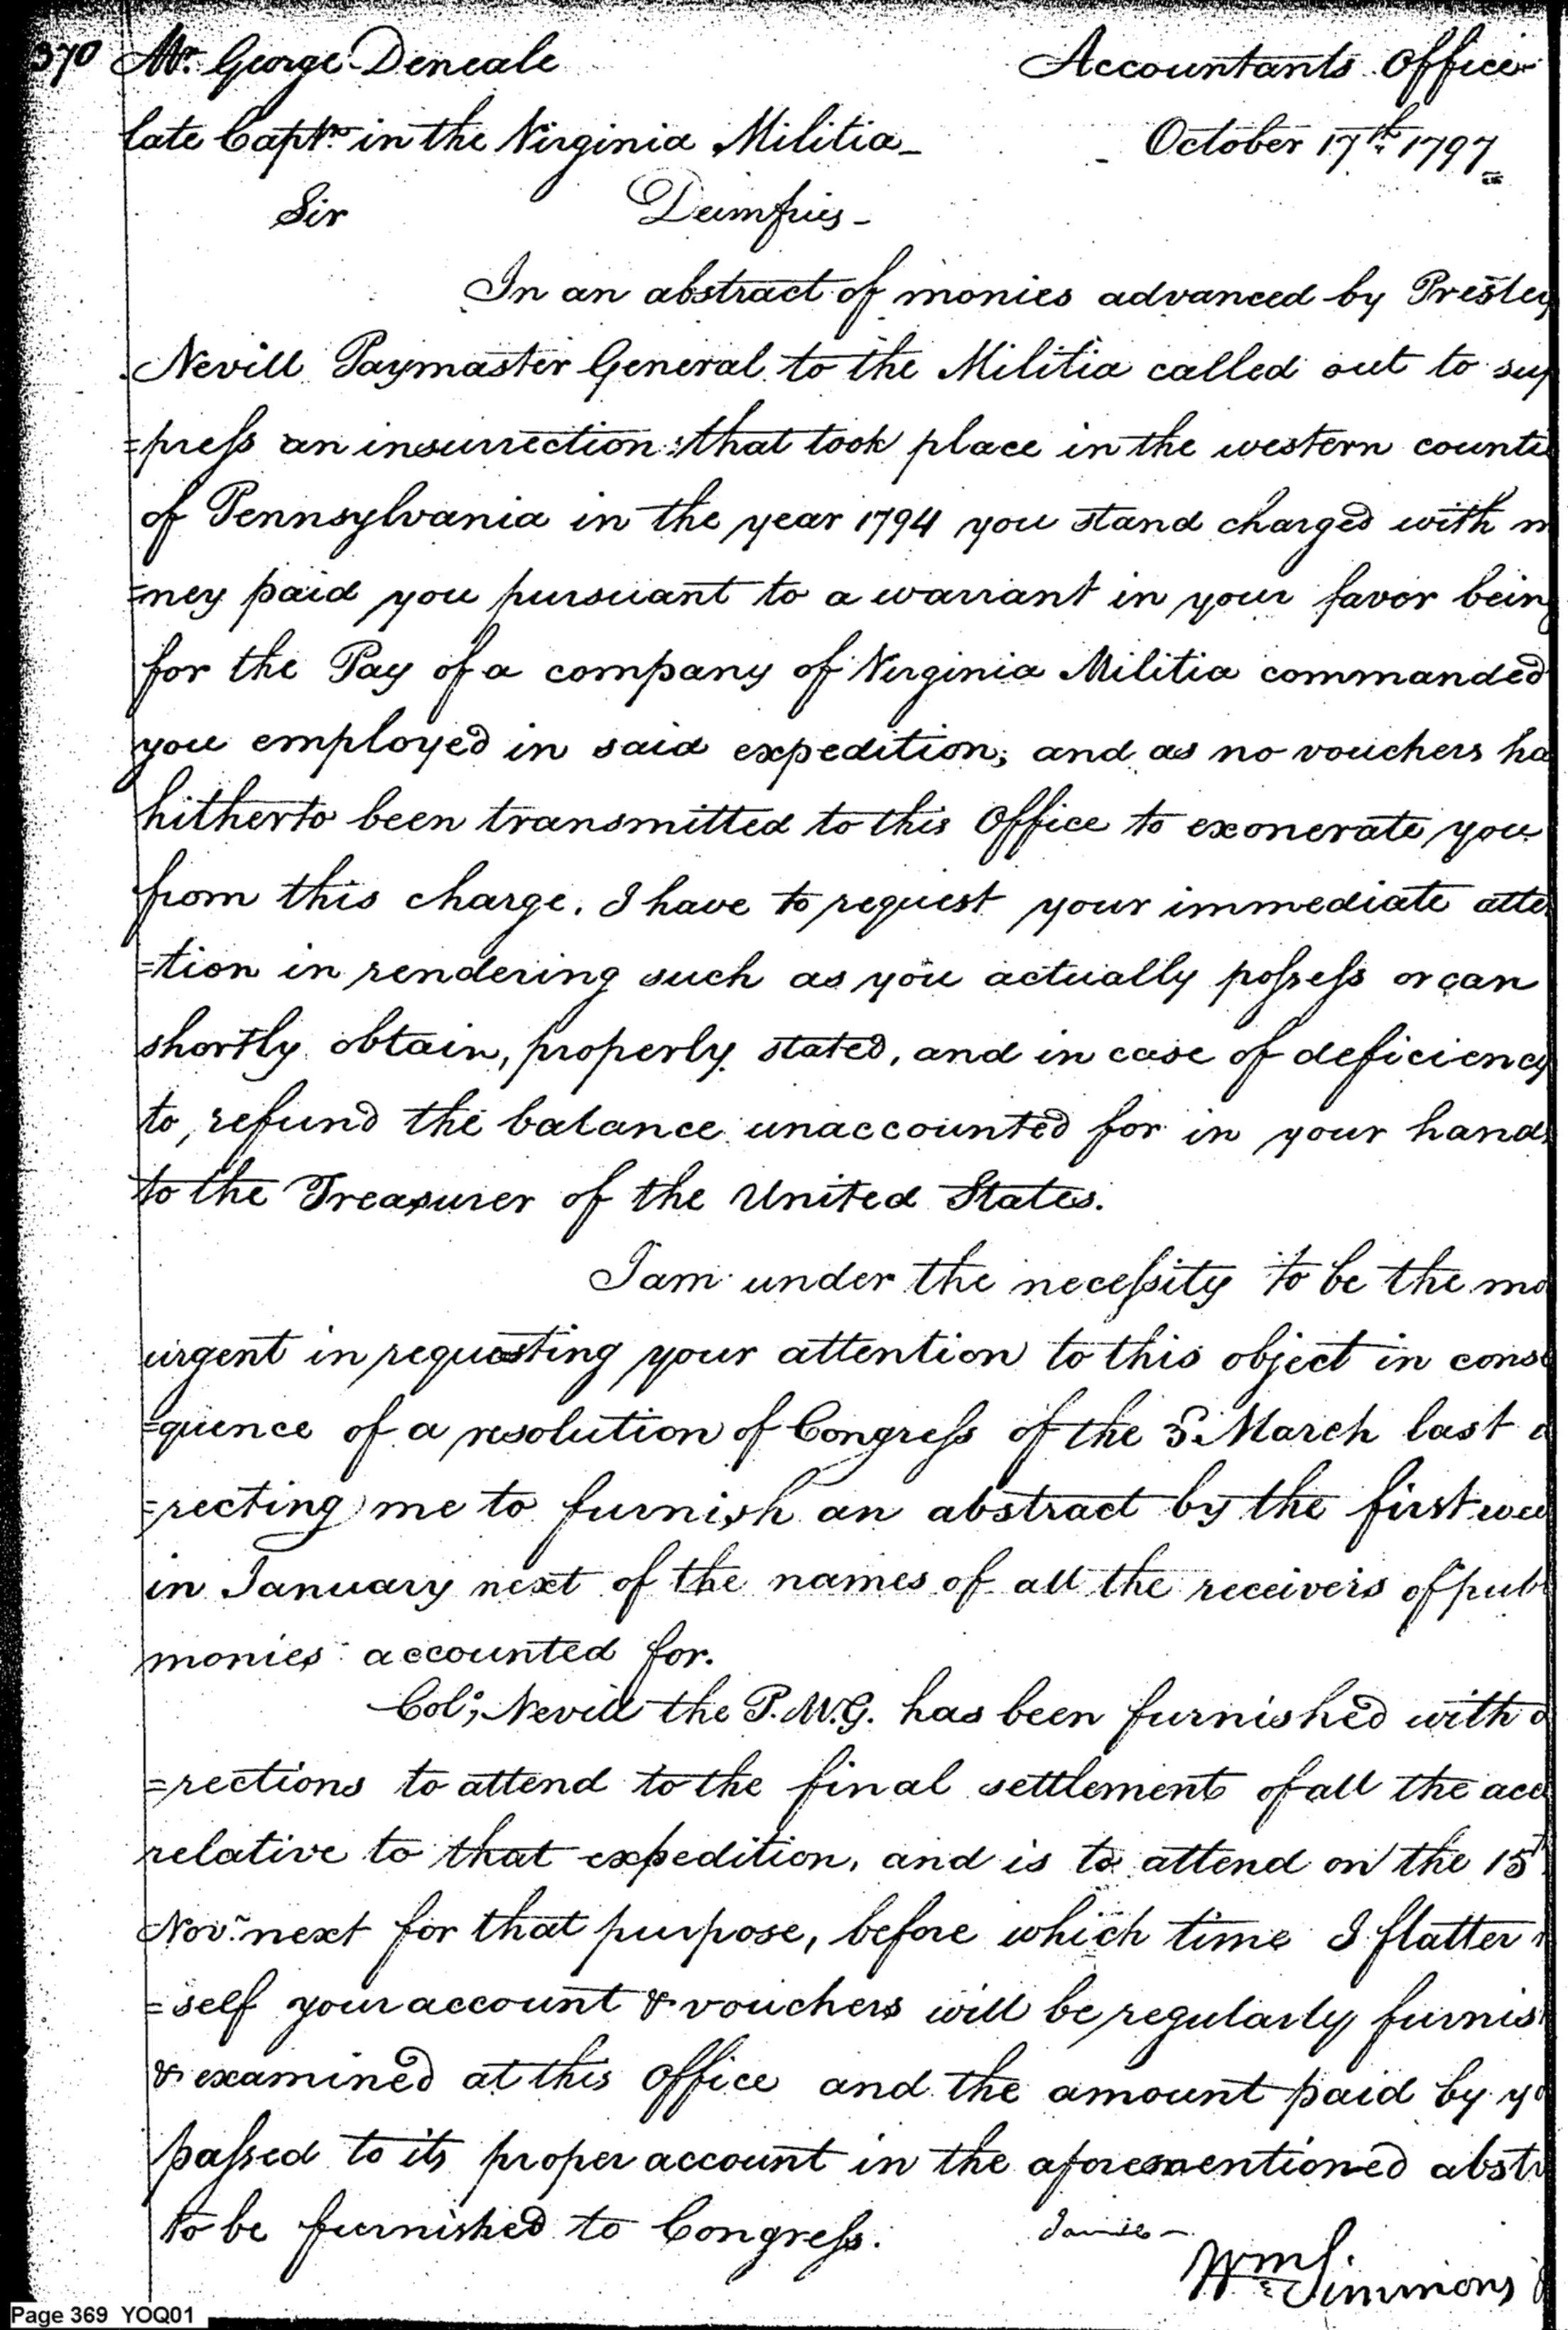 370 Mr. George Deneale Accountants Office
late Captn. in the Virginia Militia_ - October 17th. 1797
Sir Dumfries -
In an abstract of monies advanced by Presley
Nevill Paymaster General to the Militia called out to sup
=press an insurrection that took place in the western countie
of Pennsylvania in the year 1794 you stand charged with m
=ney paid you pursuant to a warrant in your favor being
for the Pay of a company of Virginia Militia commanded
you employed in said expedition; and as no vouchers ha
hitherto been transmitted to this Office to exonerate you
from this charge. I have to request your immediate atte
=tion in rendering such as you actually possess or can
shortly obtain, properly stated, and in case of deficiency
to refund the balance unaccounted for in your hands
to the Treasurer of the United States.
I am under the necessity to be the mo
urgent in requesting your attention to this object in conse
=quence of a resolution of Congress of the 3 March last d
=recting me to furnish an abstract by the first wee
in January next of the names of all the receivers of publ
monies accounted for.
Colo; Nevill the P.M.G. has been furnished with d
=rections to attend to the final settlement of all the acc
relative to that expedition, and is to attend on the 15th
Novr. next for that purpose, before which time I flatter m
=self your account & vouchers will be regularly furnis
& examined at this Office and the amount paid by yo
passed to its proper account in the aforementioned abstr
to be furnished to Congress. I am &c -
Wm. Simmons
Page 369 YOQ01